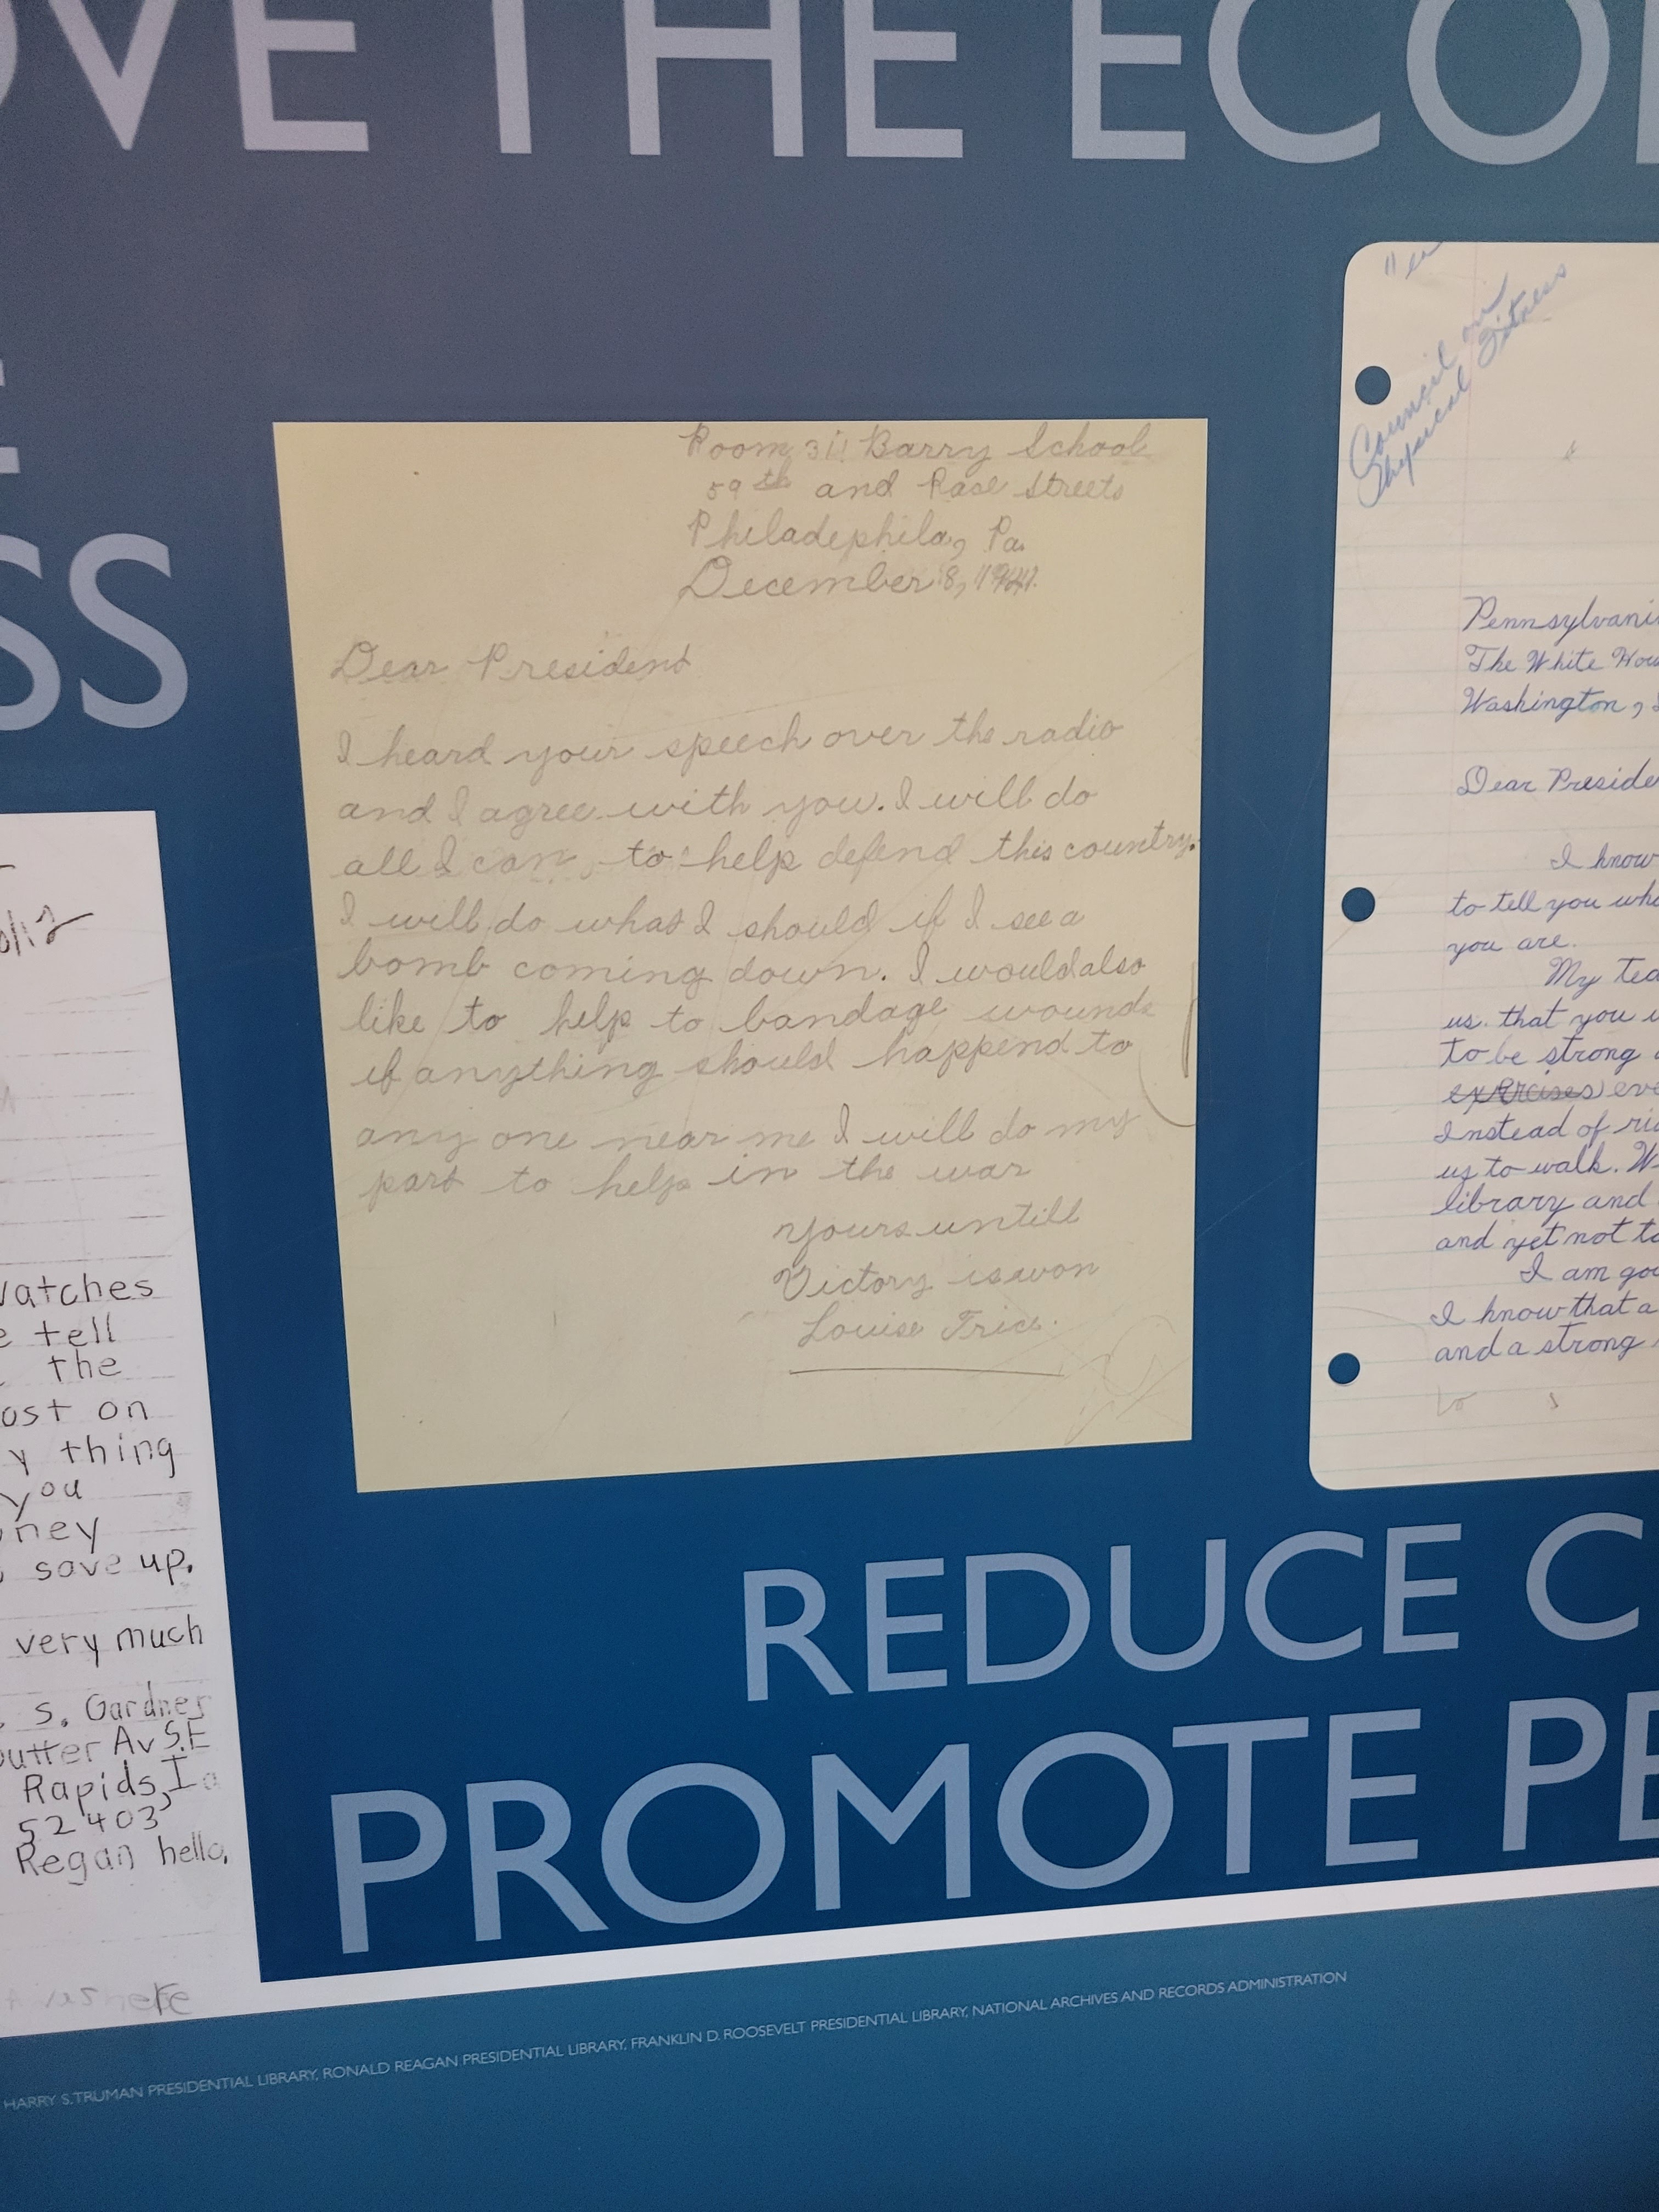 OVE THE ECO
SS
Room 311 Barry School
59th and Race Streets
Philadephila, Pa.
December 8, 1941.
Dear President
I heard your speech over the radio
and I agree with you. I will do
all I can, to help defend this country.
I will do what I should if I see a
bomb coming down. I would also
like to help to bandage wounds
if anything should happend to
any one near me I will do my
part to help in the war
Yours untill
Victory is won
Louise Trice.
Council on
Physical Fitness
Pennsylvani
The White Hou
Washington,
Dear Preside
I know
to tell you wh
you are.
My tea
us. that you
to be strong
exercises eve
Instead of ri
us to walk. W
library and
and yet not to
I am go
I know that a
and a strong
/12
atches
tell
the
ost on
y thing
you
ney
save up.
very much
S. Gardner
utter Av S.E
Rapids, Ia
52403
Regan hello,
was here
REDUCE C
PROMOTE PE
HARRY S. TRUMAN PRESIDENTIAL LIBRARY, RONALD REAGAN PRESIDENTIAL LIBRARY, FRANKLIN D. ROOSEVELT PRESIDENTIAL LIBRARY, NATIONAL ARCHIVES AND RECORDS ADMINISTRATION